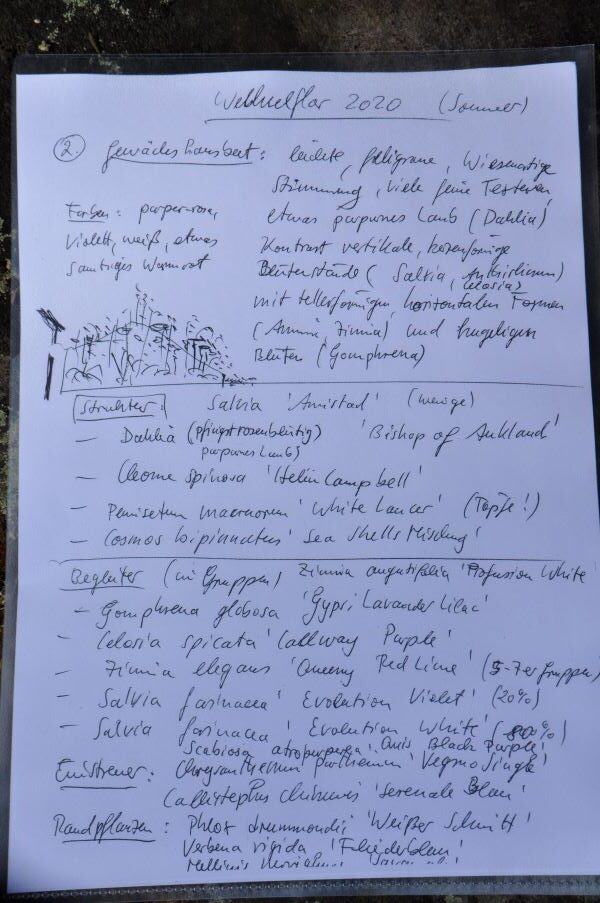 2020 (Sommer)
2. Gewächshausbeet: leichte, filigrane, Wiesenartige
Stimmung, viele feine Texturen,
Farben: purpur-rosa, etwas purpurnes Laub (Dahlia)
Violett, weiß, etwas Kontrast vertikale, kerzenförmige
samtiges Weinrot Blütenstände (Salvia, Antirrhinum)
Celosia)
mit tellerförmigen, horizontalen Formen
(Ammi, Zinnia) und kugeligen
Blüten (Gomphrena)
Struktur: Salvia 'Amistad' (wenige)
- Dahlia (pfingstrosenblütig) 'Bishop of Aukland'
purpurnes Laub
- Cleome spinosa 'Helen Campbell'
- Penisetum macrourum 'White Lancer' (Töpfe!)
- Cosmos bipinnatus 'Sea Shells Mischung'
Begleiter (in Gruppen) Zinnia angustifolia 'Profusion White'
- Gomphrena globosa 'Gypsi Lavander Lilac'
- Celosia spicata 'Callway Purple'
- Zinnia elegans 'Queeny Red Lime' (5-7er Gruppen)
- Salvia farinacea 'Evolution Violet' (20%)
- Salvia farinacea 'Evolution White' (80%)
Scabiosa atropurpurea 'Black Purple'
Einstreuer: Chrysanthemum parthenium 'Vegmo Single'
Callistephus chinensis 'Serenade Blau'
Randpflanzen: Phlox drummondii 'Weißer Schnitt'
Verbena rigida 'Fliederblau'